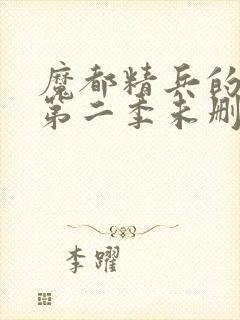 魔都精兵的
第二季未删
李躍